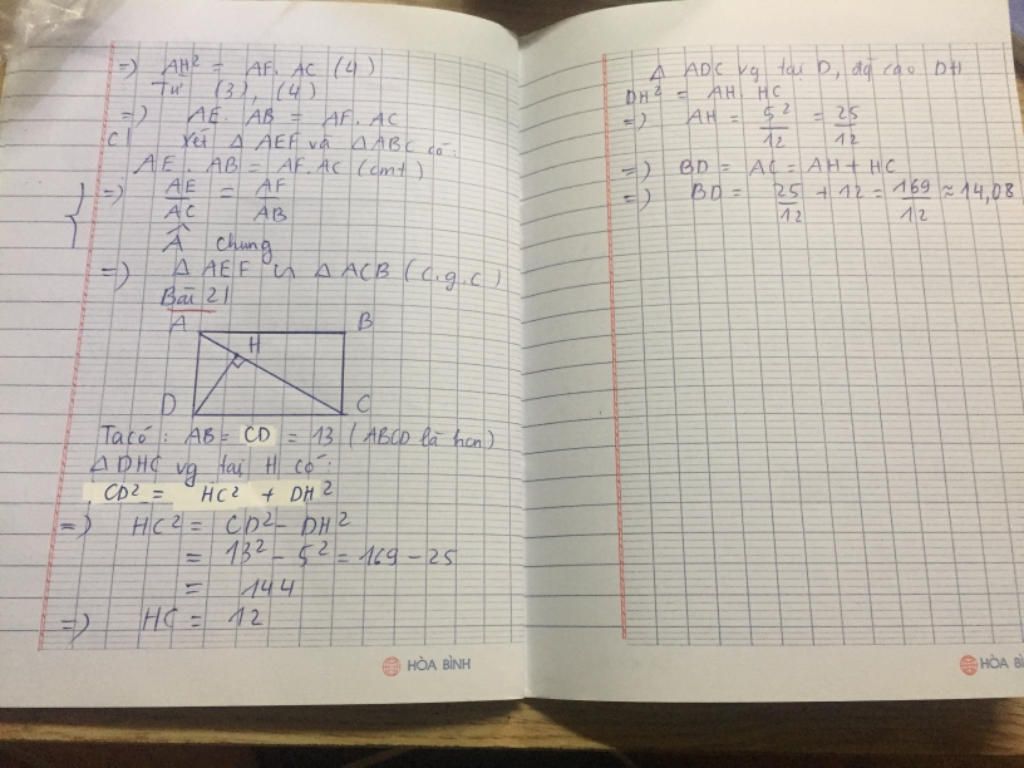 =) AH² = AF. AC (4)
Từ (3), (4)
=) AE. AB = AF. AC
c) Xét Δ AEF và Δ ABC có:
AE. AB = AF. AC (cmt)
=) AE/AC = AF/AB
Â chung
=) Δ AEF ∽ Δ ACB (c.g.c)
Bài 2)
A B
H
D C
Ta có: AB = CD = 13 (ABCD là hcn)
Δ DHC vg tại H có:
CD² = HC² + DH²
=) HC² = CD² - DH²
= 13² - 5² = 169 - 25
= 144
=) HC = 12
HÒA BÌNH
Δ ADC vg tại D, đg cao DH
DH² = AH. HC
=) AH = 5²/12 = 25/12
=) BD = AC = AH + HC
=) BD = 25/12 + 12 = 169/12 ≈ 14,08
HÒA BÌ